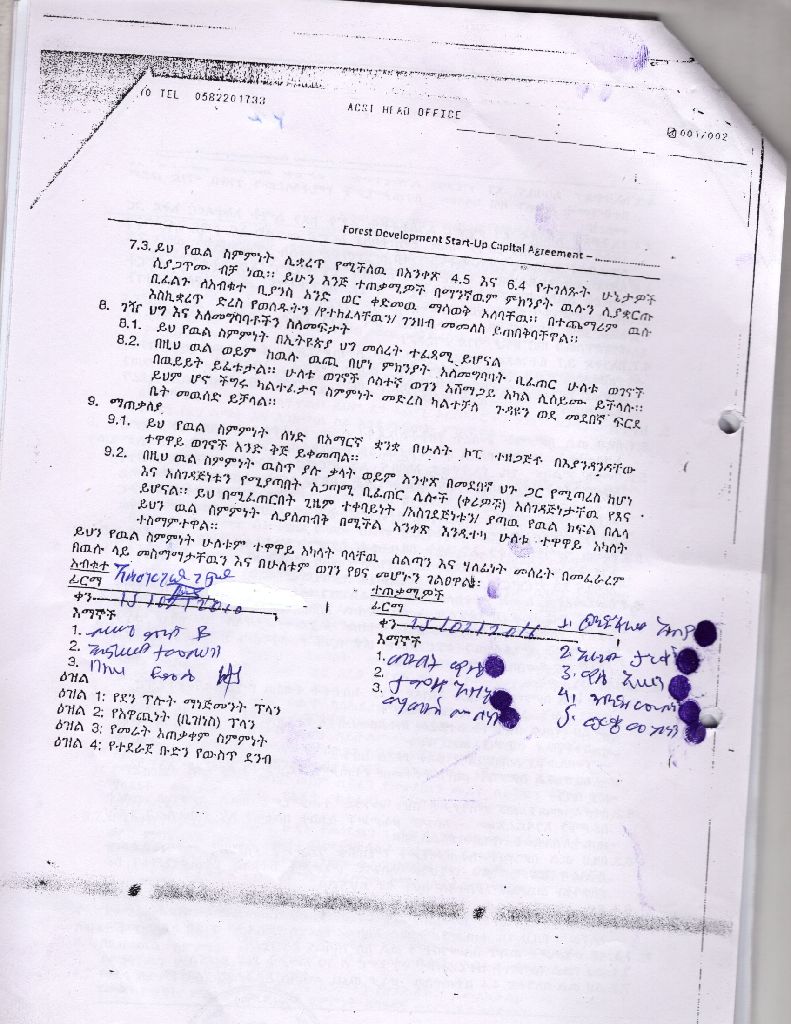 TEL 0582201733 ACSI HEAD OFFICE 001/002
Forest Development Start-Up Capital Agreement –
7.3. ይህ የዉል ስምምነት ሊቋረጥ የሚችለዉ በአንቀጽ 4.5 እና 6.4 የተገለጹት ሁኔታዎች
ሲያጋጥሙ ብቻ ነዉ፡፡ ይሁን እንጅ ተጠቃሚዎች በማንኛዉም ምክንያት ዉሉን ሊያቋርጡ
ቢፈልጉ ለአብቁተ ቢያንስ አንድ ወር ቀድመዉ ማሳወቅ አለባቸዉ፡፡ በተጨማሪም ዉሉ
እስኪቋረጥ ድረስ የወሰዱትን /የተከፈላቸዉን/ ገንዘብ መመለስ ይጠበቅባቸዋል፡፡
8. ገዥ ህግ እና አለመግባባቶችን ስለመፍታት
8.1. ይህ የዉል ስምምነት በኢትዮጵያ ህግ መሰረት ተፈጻሚ ይሆናል
8.2. በዚህ ዉል ወይም ከዉሉ ዉጪ በሆነ ምክንያት አለመግባባት ቢፈጠር ሁለቱ ወገኖች
በዉይይት ይፈቱታል፡፡ ሁለቱ ወገኖች ሶስተኛ ወገን አሸማጋይ አካል ሊሰይሙ ይችላሉ፡፡
ይህም ሆኖ ችግሩ ካልተፈታና ስምምነት መድረስ ካልተቻለ ጉዳዩን ወደ መደበኛ ፍርድ
ቤት መዉሰድ ይቻላል፡፡
9. ማጠቃለያ
9.1. ይህ የዉል ስምምነት ሰነድ በአማርኛ ቋንቋ በሁለት ኮፒ ተዘጋጅቶ በእያንዳንዳቸው
ተዋዋይ ወገኖች እንድ ቅጅ ይቀመጣል፡፡
9.2. በዚህ ዉል ስምምነት ዉስጥ ያሉ ቃላት ወይም አንቀጽ በመደበኛ ህጉ ጋር የሚጣረስ ከሆነ
እና አስገዳጅነቱን የሚያጣበት አጋጣሚ ቢፈጠር ሌሎች (ቀሪዎች) አስገዳጅነታቸዉ የጸና
ይሆናል፡፡ ይህ በሚፈጠርበት ጊዜም ተቀባይነት /አስገደጅነቱን/ ያጣዉ የዉል ክፍል በሌላ
ይህን ዉል ስምምነት ሊያስጠብቅ በሚችል አንቀጽ እንዲተካ ሁለቱ ተዋዋይ አካላት
ተስማምተዋል፡፡
ይህን የዉል ስምምነት ሁለቱም ተዋዋይ አካላት ባላቸዉ ስልጣን እና ሃለፊነት መሰረት በመፈራረም
በዉሉ ላይ መስማማታቸዉን እና በሁለቱም ወገን የፀና መሆኑን ገልፀዋል፡፡
አብቁተ
ተጠቃሚዎች
ፊርማ
ፊርማ
ቀን
ቀን
እማኞች
እማኞች
1.
2.
3.
1.
2.
3.
ዕዝል
ዕዝል 1: የደን ፕሎት ማነጅመንት ፕላን
ዕዝል 2: የአዋጪነት (ቢዝነስ) ፕላን
ዕዝል 3: የመሬት አጠቃቀም ስምምነት
ዕዝል 4: የተደራጀ ቡድን የውስጥ ደንብ